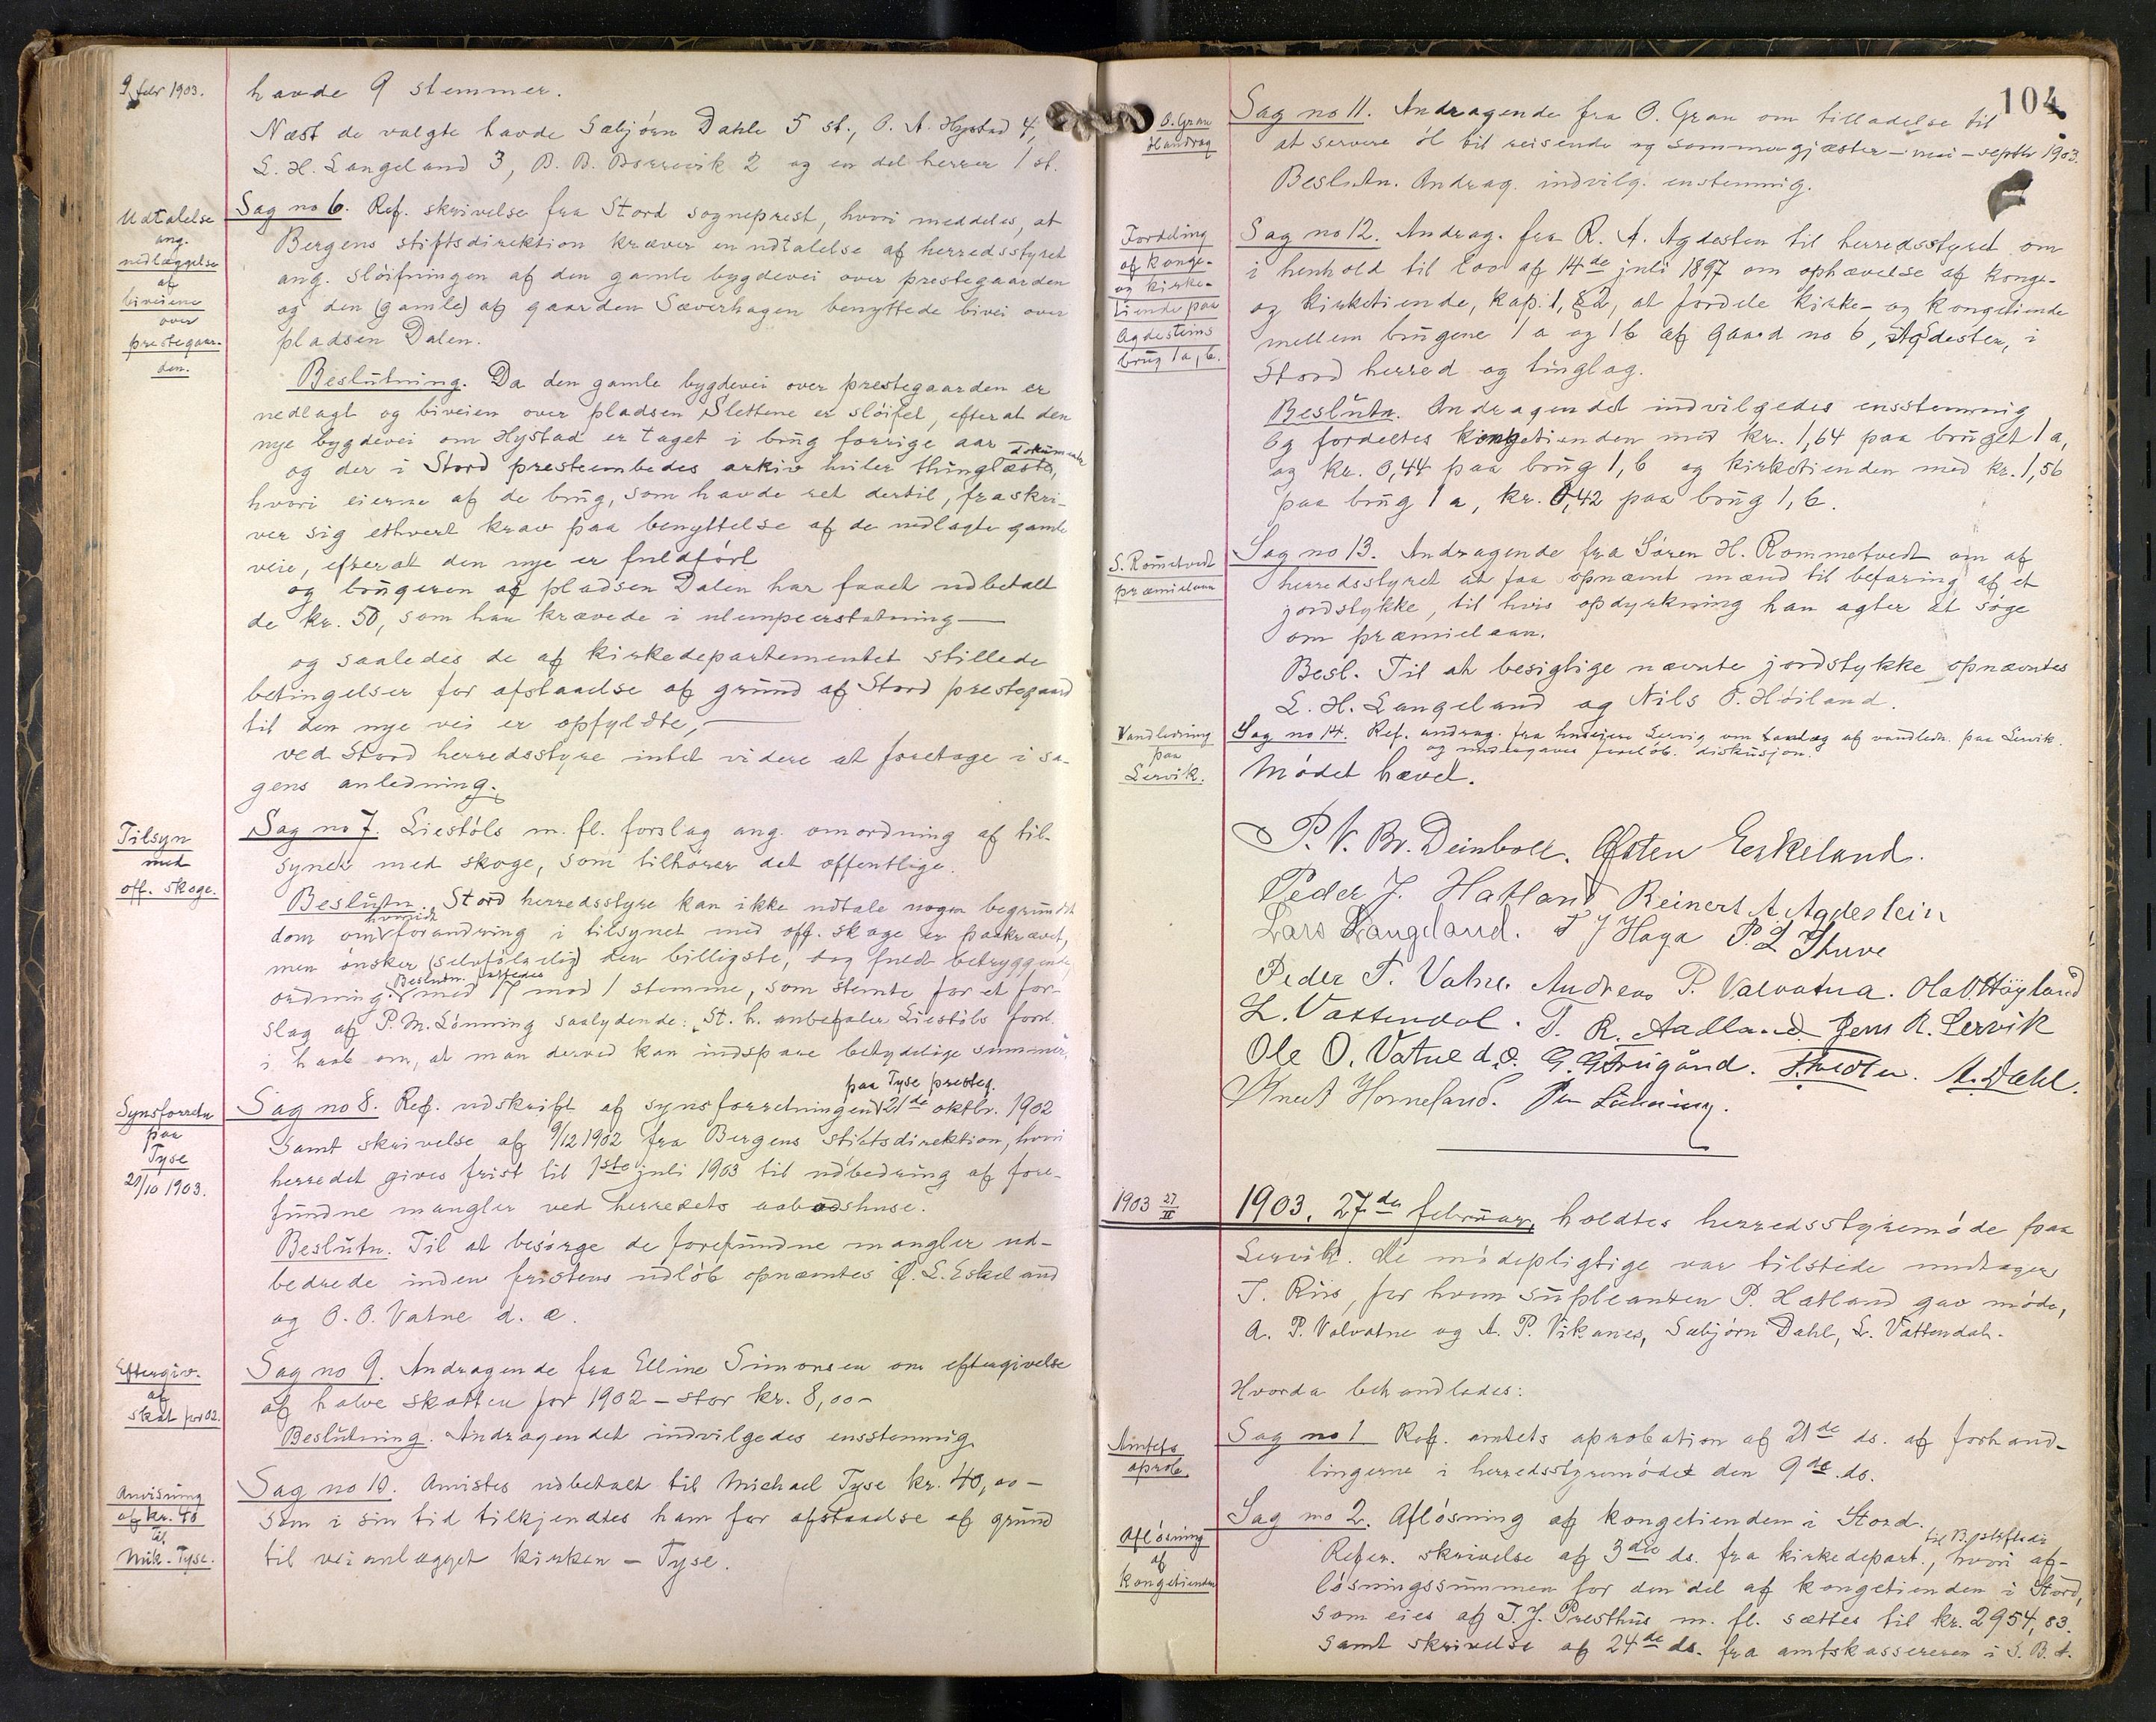 9 febr 1903.
havde 9 stemmer.
Næst de valgte havde Sæbjörn Dahle 5 st., O. A. Hystad 4,
L. H. Langeland 3, B. B. Borrevik 2 og en del herrer 1 st.
Udtalelse
ang.
nedlæggelse
af
biveiene
over
prestegaar-
den.
Sag no 6. Ref. skrivelse fra Stord sogneprest, hvori meddeles, at
Bergens stiftsdirektion kræver en udtalelse af herredsstyret
ang. slöifningen af den gamle bygdevei over prestegaarden
og den (gamle) af gaarden Sæverhagen benyttede bivei over
pladsen Dalen.
Beslutning. Da den gamle bygdevei over prestegaarden er
nedlagt og biveien over pladsen Slettene er slöifet, efterat den
nye bygdevei om Hystad er taget i brug forrige aar
og der i Stord presteembedes arkiv hviler thinglæste dokumenter,
hvori eierne af de brug, som havde ret dertil, fraskri-
ver sig ethvert krav paa benyttelse af de nedlagte gamle
veie, efterat den nye er fuldfört
og brugeren af pladsen Dalen har faaet udbetalt
de kr. 50, som han krævede i ulempeerstatning —
og saaledes de af kirkedepartementet stillede
betingelser for afstaaelse af grund af Stord prestegaard
til den nye vei er opfyldte, —
ved Stord herredsstyre intet videre at foretage i sa-
gens anledning.
Tilsyn
med
off. skoge.
Sag no 7. Liestöls m. fl. forslag ang. omordning af til-
synet med skoge, som tilhörer det offentlige.
Beslutn. Stord herredsstyre kan ikke udtale nogen begrundet
dom om hvorvidt forandring i tilsynet med off. skoge er paakrævet,
men önsker (selvfölgelig) den billigste, dog fuldt betryggende
ordning. Beslutn. fattedes med 17 mod 1 stemme, som stemte for et for-
slag af P. M. Lönning saalydende: "St. h. anbefaler Liestöls fors.
i haab om, at man derved kan indspare betydelige summer.
Synsforretn
paa
Tyse
21/10 1903.
Sag no 8. Ref. udskrift af synsforretningen paa Tyse presteg. 21de oktbr. 1902
samt skrivelse af 9/12 1902 fra Bergens stiftsdirektion, hvori
herredet gives frist til 1ste juli 1903 til udbedring af fore-
fundne mangler ved herredets aabodshuse.
Beslutn. Til at besörge de forefundne mangler ud-
bedrede inden fristens udlöb opnævntes Ö. L. Eskeland
og O. O. Vatne d. æ.
Eftergiv.
af
skat for 02.
Sag no 9. Andragende fra Elline Simonsen om eftergivelse
af halve skatten for 1902 – stor kr. 8,00 –
Beslutning. Andragendet indvilgedes ensstemmig.
Anvisning
af kr. 40
til
Mik. Tyse.
Sag no 10. Anvistes udbetalt til Michael Tyse kr. 40,00 –
som i sin tid tilkjendtes ham for afstaaelse af grund
til veianlægget kirken – Tyse.
104
O. Gran
Handrag
Sag no 11. Andragende fra O. Gran om tilladelse til
at servere öl til reisende og sommergjæster – mai – septbr 1903.
Beslutn. Andrag. indvilg. enstemmig.
Fordeling
af konge-
og kirke-
tiende paa
Agdesteins
brug 1 a, b.
Sag no 12. Andrag. fra R. A. Agdesten til herredsstyret om
i henhold til lov af 14de juli 1897 om ophævelse af konge-
og kirketiende, kap. 1, § 2, at fordele kirke- og kongetiende
mellem brugene 1 a og 1 b af gaard no 6, Agdesten, i
Stord herred og tinglag.
Beslutn. Andragendet indvilgedes ensstemmig
og fordeltes kongetienden med kr. 1,64 paa bruget 1 a,
og kr. 0,44 paa brug 1, b og kirketienden med kr. 1,56
paa brug 1 a, kr. 0,42 paa brug 1, b.
S. Rometvedt
præmielaan
Sag no 13. Andragende fra Sören H. Rommetvedt om af
herredsstyret at faa opnævnt mænd til befaring af et
jordstykke, til hvis opdyrkning han agter at söge
om præmielaan.
Besl. Til at besigtige nævnte jordstykke opnævntes
L. H. Langeland og Nils O. Höiland.
Vandledning
paa
Lervik.
Sag no 14. Ref. andrag. fra huseiere Lervig om anlæg af vandledn. paa Lervik.
og foreløb. diskusjon.
Mödet hævet.
P. V. Br. Deinboll. Östen Eskeland.
Peder J. Hatland Reinert A Agdestein
Lars Langeland. T J Haga P. L Thuve
Peder T. Vatne. Andreas P. Valvatna. Ola O. Høyland
L. Vattendal. T. R. Aadland. Jens R. Lervik
Ole O. Vatne d. æ. A. Dahl.
Knut Horneland. P M Lönning.
1903 27/II
1903. 27de februar, holdtes herredsstyremöde paa
Lervik. De mödepligtige var tilstede undtagen
J. Riis, for hvem supleanten P. Hatland gav möde,
A. P. Valvatne og A. P. Vikanes, Sæbjörn Dahl, L. Vattendah.
Hvorda behandledes:
Amtets
aprob.
Sag no 1 Ref. amtets aprobation af 21de ds. af forhand-
lingerne i herredsstyremödet den 9de ds.
Aflösning
af
kongetienden
Sag no 2. Aflösning af kongetienden i Stord.
Refer. skrivelse af 3die ds. fra kirkedepart., hvori af-
lösningssummen for den del af kongetienden i Stord,
som eies af T. J. Presthus m. fl. sættes til kr. 2954,83.
samt skrivelse af 24de ds. fra amtskassereren i S. B. A.